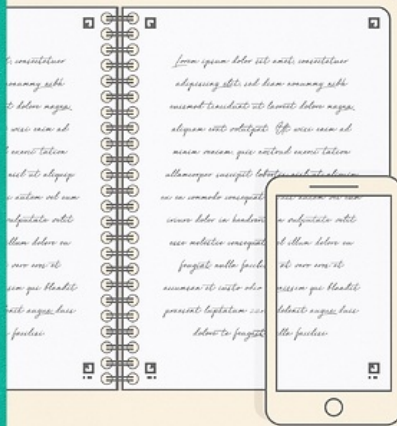 t, consectetuer
nonummy nibh
t dolore magna
wisi enim ad
exerci tation
nisl ut aliquip
autem vel eum
vulputate velit
llum dolore eu
vero eros et
ssim qui blandit
nit augue duis
facilisi
Lorem ipsum dolor sit amet, consectetuer
adipiscing elit, sed diam nonummy nibh
euismod tincidunt ut laoreet dolore magna
aliquam erat volutpat. Ut wisi enim ad
minim veniam, quis nostrud exerci tation
ullamcorper suscipit lobortis nisl ut aliquip
ex ea commodo consequat autem vel eum
iriure dolor in hendrerit vulputate velit
esse molestie consequat illum dolore eu
feugiat nulla facili at vero eros et
accumsan et iusto odio nissim qui blandit
praesent luptatum zzril delenit augue duis
dolore te feugait lla facilisi